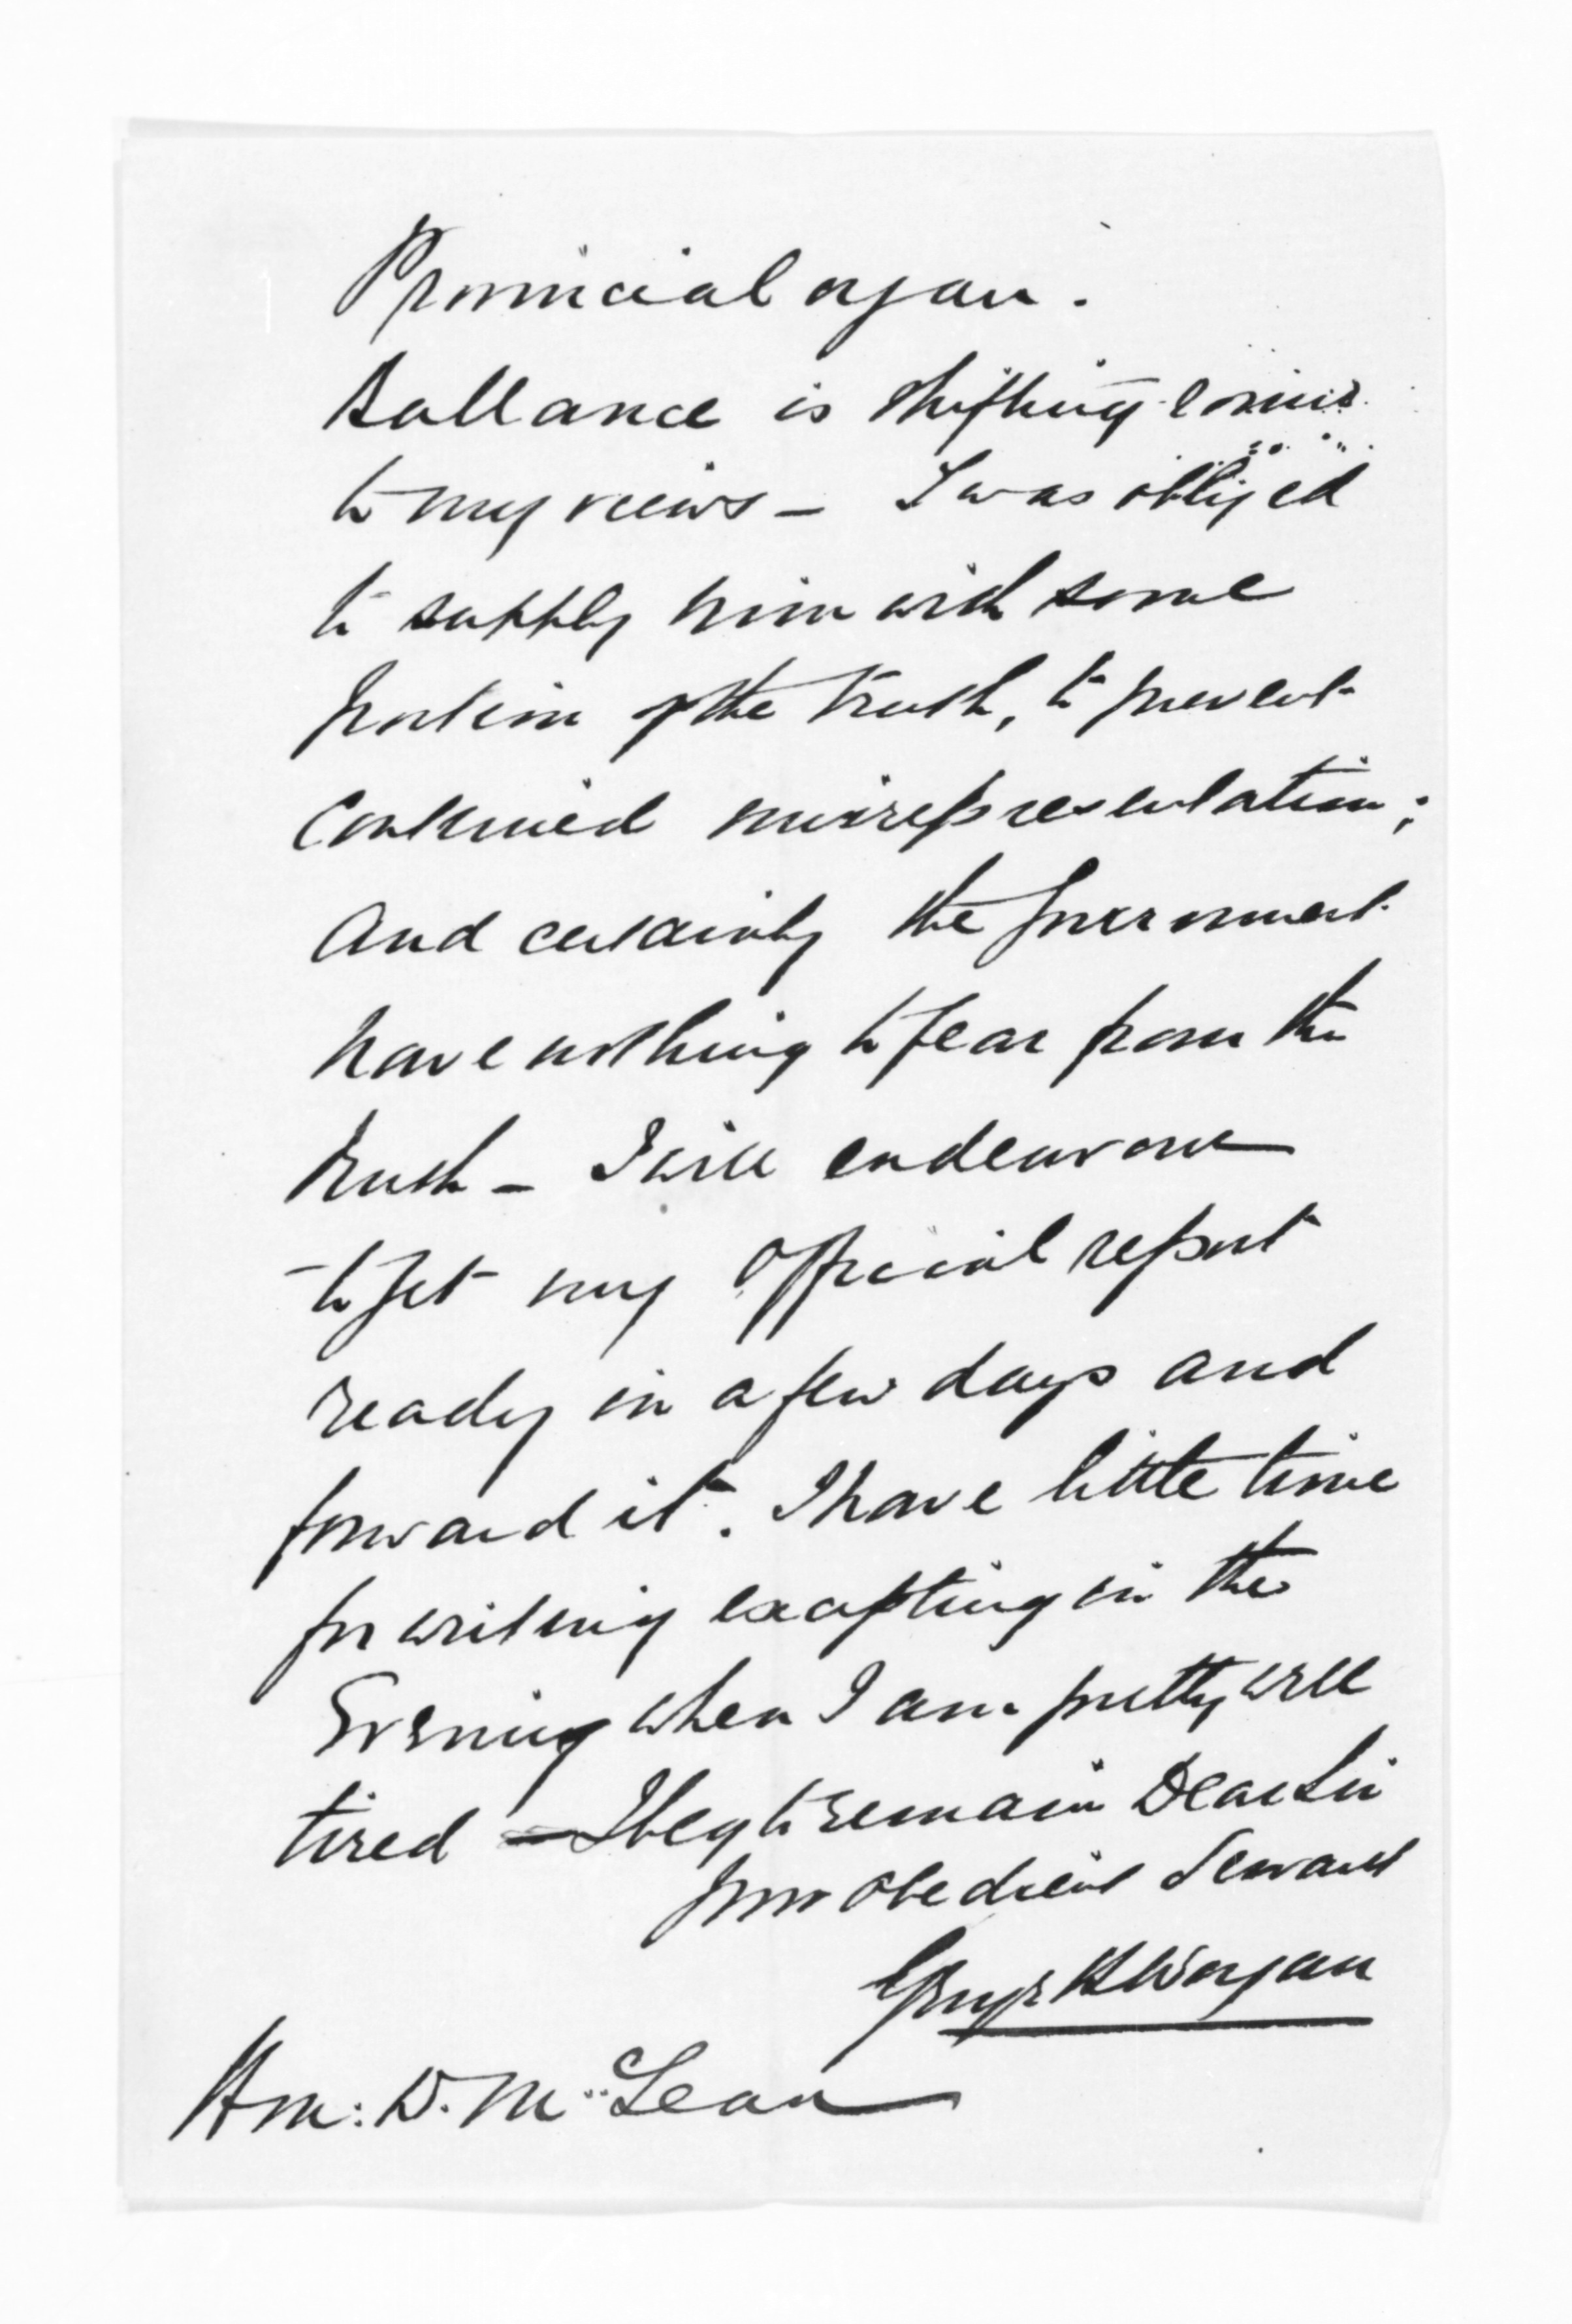 Provincial organ.
Ballance is shifting
to my views - I was obliged
to supply him with some
portion of the truth, to prevent
continued misrepresentation;
And certainly the Government
have nothing to fear from the
truth - I will endeavour
to get my official report
ready in a few days and
forward it. I have little time
for writing excepting in the
Evening when I am pretty well
tired - I beg to remain Dear Sir
Your obedient Servant
George H Worgan
Hon: D. McLean